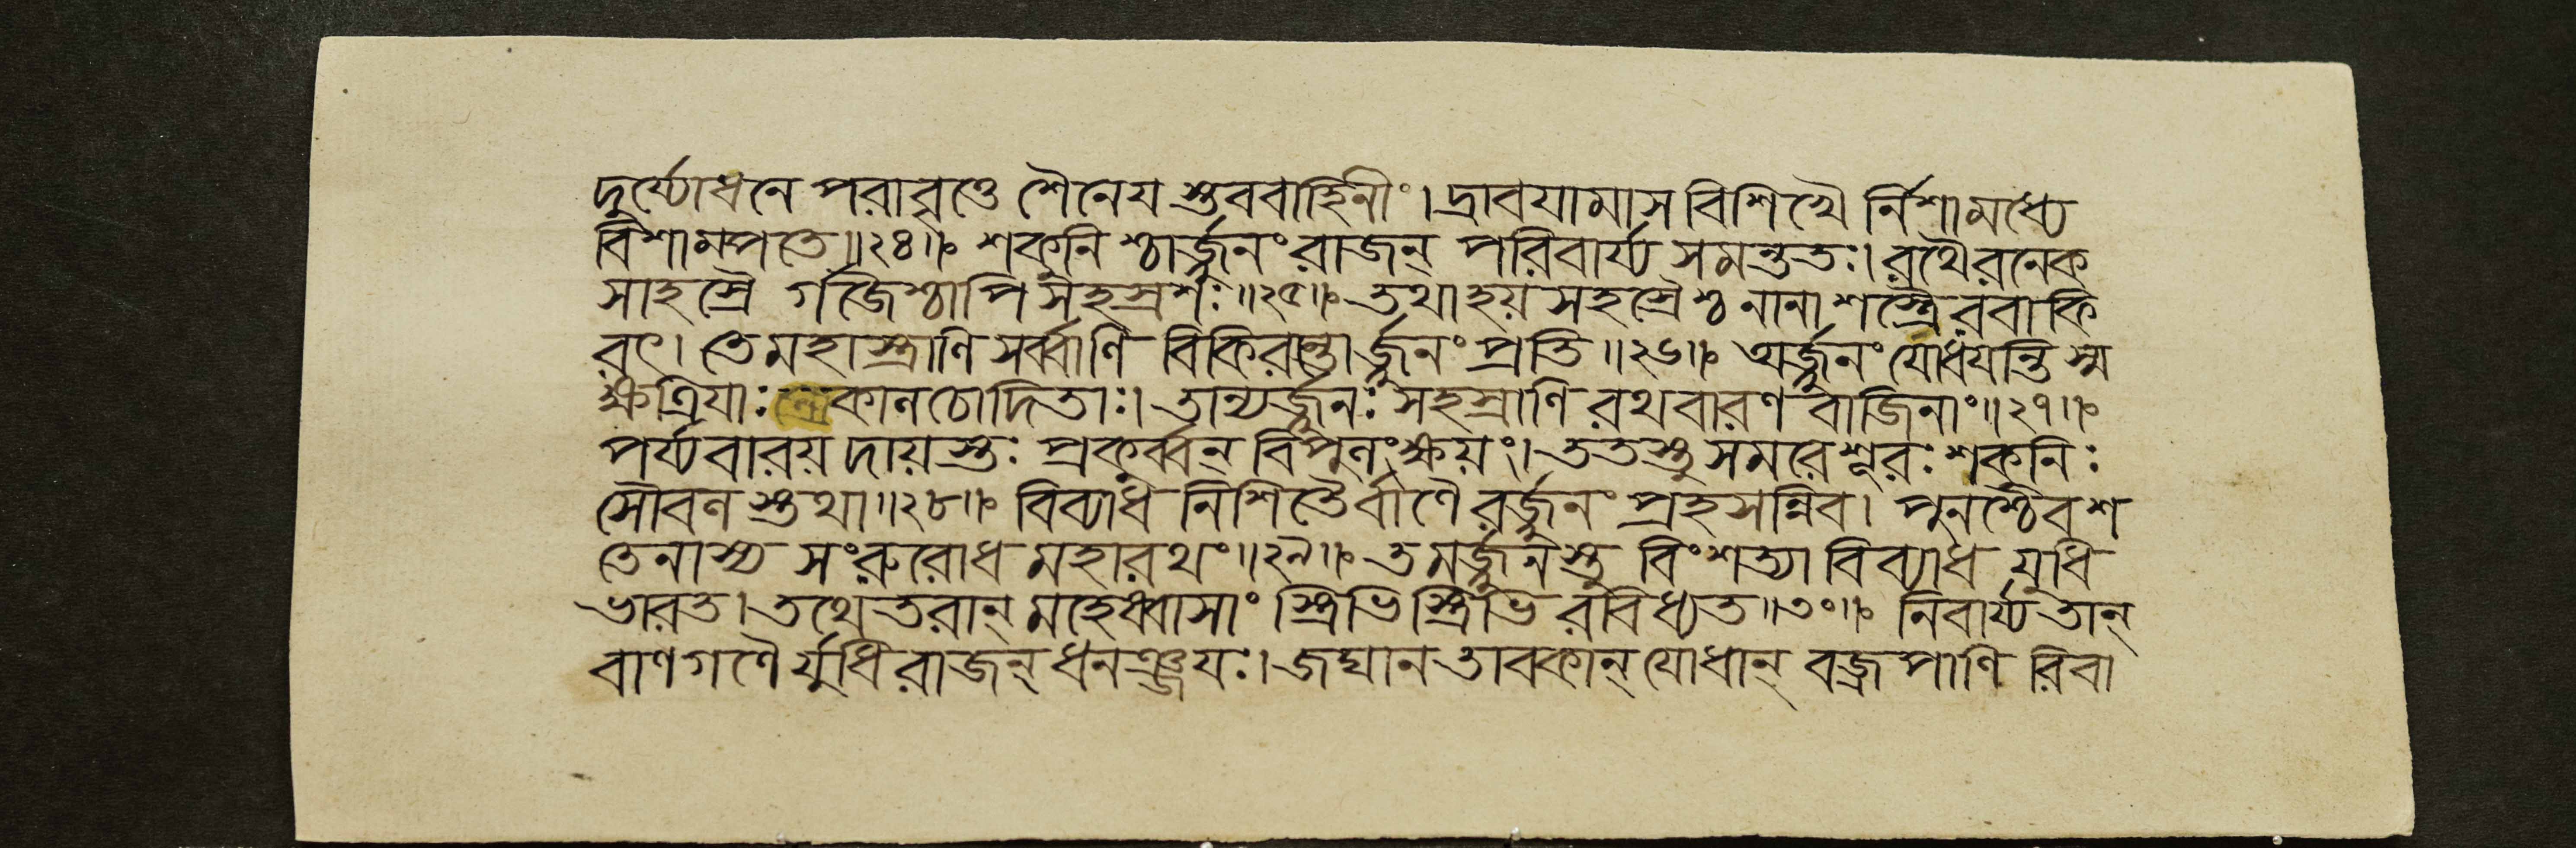 দুর্য্যোধনে পরাবৃত্তে শৈনেয স্তুববাহিনীং। দ্রাবযামাস বিশিখৈ র্নিশামধ্যে
বিশামপতে॥২৪॥ শকুনি শ্চার্জ্জুনং রাজন্ পরিবার্য্য সমন্ততঃ। রথৈরনেক
সাহস্রৈ র্গজৈশ্চাপি সহস্রশঃ॥২৫॥ তথা হয় সহস্রৈশ্চ নানা শস্ত্রৈরবাকি
রৎ। তে মহাস্ত্রাণি সর্ব্বাণি বিকিরান্তোর্জ্জুনং প্রতি॥২৬॥ অর্জ্জুনং যোধযন্তি স্ম
ক্ষত্রিযাঃ কালচোদিতাঃ। তান্যর্জ্জুনঃ সহস্রাণি রথবারণ বাজিনাং॥২৭॥
পর্য্যবারয় দায়স্তঃ প্রকুর্ব্বন্ বিপুলংক্ষয়ং। ততস্তু সমরেশূরঃ শকুনিঃ
সৌবল স্তথা॥২৮॥ বিব্যাধ নিশিতৈর্বাণৈ রর্জ্জুনং প্রহসন্নিব। পুনশ্চৈব শ
তেনাস্য সংরুরোধ মহারথং॥২৯॥ তমর্জ্জুনস্তু বিংশত্যা বিব্যাধ যুধি
ভারত। তথেতরান্ মহেষ্বাসাং স্ত্রিভি স্ত্রিভি রবিধ্যত॥৩০॥ নিবার্য্য তান্
বাণগণৈ র্যুধি রাজন্ ধনঞ্জযঃ। জঘান তাবকান্ যোধান্ বজ্রপাণি রিবা